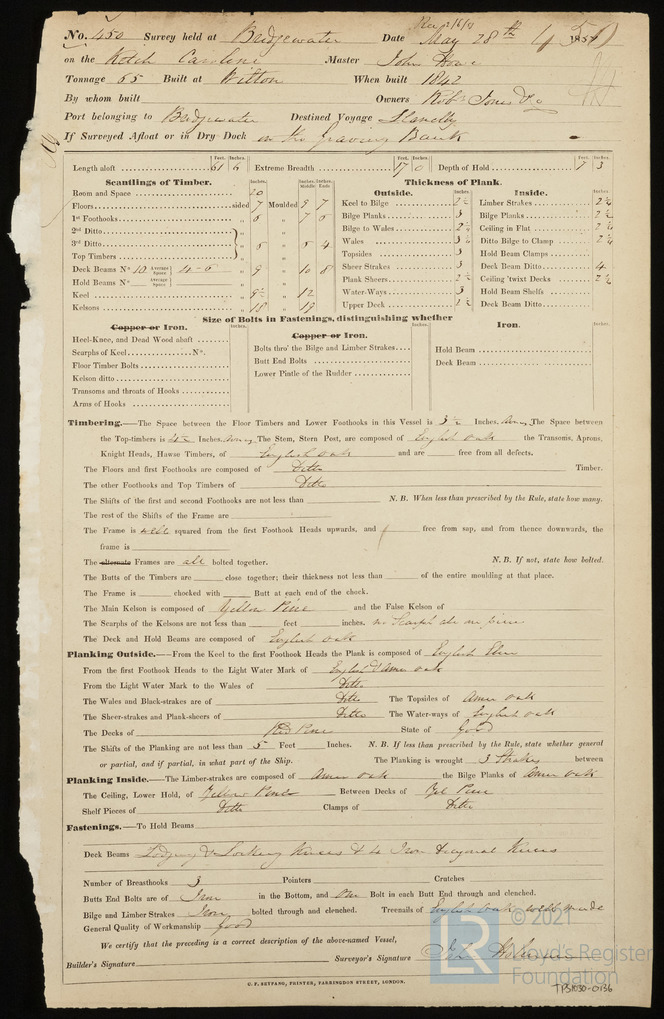 Rec 2/6/51
No. 450 Survey held at Bridgewater Date May 28th 1851
on the Ketch Caroline Master John Howe
Tonnage 65 Built at Witton When built 1842
By whom built Owners Robt Jones & Co
Port belonging to Bridgewater Destined Voyage Llanelly
If Surveyed Afloat or in Dry Dock on the graving Bank
Feet. Inches. Feet. Inches. Feet. Inches.
Length aloft 61 6 Extreme Breadth 17 0 Depth of Hold 7 3
Scantlings of Timber. Thickness of Plank.
Inches. Inches. Middle Inches. Ends Outside. Inches. Inside. Inches.
Room and Space 20 Keel to Bilge 2 1/2 Limber Strakes
Floors sided 7 Moulded 9 7 Bilge Planks 3 Bilge Planks
1st Foothooks „ 6 „ 7 6 Bilge to Wales Ceiling in Flat
2nd Ditto „ Wales Ditto Bilge to Clamp
3rd Ditto „ 6 „ 5 4 Topsides 3 Hold Beam Clamps
Top Timbers „ Sheer Strakes 3 Deck Beam Ditto 4
Deck Beams No. 10 Average Space 4-6 „ 9 „ 10 8 Plank Sheers 2 1/2 Ceiling 'twixt Decks
Hold Beams No. Average Space „ Water-Ways 3 Hold Beam Shelfs
Keel „ 9 1/2 „ 12 Upper Deck Deck Beam Ditto
Kelsons „ 18 „ 19
Size of Bolts in Fastenings, distinguishing whether
Copper or Iron. Copper or Iron. Iron.
Heel-Knee, and Dead Wood abaft
Scarphs of Keel No. Bolts thro' the Bilge and Limber Strakes Hold Beam
Floor Timber Bolts Butt End Bolts Deck Beam
Kelson ditto Lower Pintle of the Rudder
Transoms and throats of Hooks
Arms of Hooks
Timbering.—The Space between the Floor Timbers and Lower Foothooks in this Vessel is 3 1/2 Inches. The Space between
the Top-timbers is Inches. The Stem, Stern Post, are composed of English oak the Transoms, Aprons,
Knight Heads, Hawse Timbers, of English Oak and are free from all defects.
The Floors and first Foothooks are composed of Ditto Timber.
The other Foothooks and Top Timbers of Ditto
The Shifts of the first and second Foothooks are not less than N. B. When less than prescribed by the Rule, state how many.
The rest of the Shifts of the Frame are
The Frame is well squared from the first Foothook Heads upwards, and free from sap, and from thence downwards, the
frame is
The alternate Frames are all bolted together. N. B. If not, state how bolted.
The Butts of the Timbers are close together; their thickness not less than of the entire moulding at that place.
The Frame is chocked with Butt at each end of the chock.
The Main Kelson is composed of Yellow Pine and the False Kelson of
The Scarphs of the Kelsons are not less than feet inches. no Scarph all one piece
The Deck and Hold Beams are composed of English Oak
Planking Outside.—From the Keel to the first Foothook Heads the Plank is composed of English Elm
From the first Foothook Heads to the Light Water Mark of English & Amer oak
From the Light Water Mark to the Wales of Ditto
The Wales and Black-strakes are of Ditto The Topsides of Amer Oak
The Sheer-strakes and Plank-sheers of Ditto The Water-ways of English Oak
The Decks of Red Pine State of Good
The Shifts of the Planking are not less than 5 Feet Inches. N. B. If less than prescribed by the Rule, state whether general
or partial, and if partial, in what part of the Ship. The Planking is wrought 3 Strakes between
Planking Inside.—The Limber-strakes are composed of Amer oak the Bilge Planks of Amer oak
The Ceiling, Lower Hold, of Yellow Pine Between Decks of Yel Pine
Shelf Pieces of Ditto Clamps of Ditto
Fastenings.—To Hold Beams
Deck Beams Lodging & Locking Knees & 4 Iron Diagonal Knees
Number of Breasthooks 3 Pointers Crutches
Butts End Bolts are of Iron in the Bottom, and One Bolt is each Butt End through and clenched.
Bilge and Limber Strakes Iron bolted through and clenched. Treenails of English Oak well made
General Quality of Workmanship good
We certify that the preceding is a correct description of the above-named Vessel,
Builder's Signature Surveyor's Signature
C. F. SEYFANG, PRINTER, FARRINGDON STREET, LONDON.
TP31030-0136
LR
© 2021
Lloyd's Register
Foundation